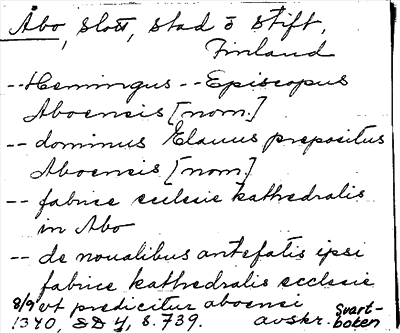 Åbo, slott, stad o stift,
Finland
-- Hemingus -- Episcopus
Aboensis [nom.]
-- dominus Elauus prepositus
Aboensis [nom.]
-- fabrice ecclesie kathedralis
in Abo
-- de noualibus antefatis ipsi
fabrice kathedralis ecclesie
8/9 vt predicitur aboensi
1340, SD 4, s. 739. avskr. Svart-
boken